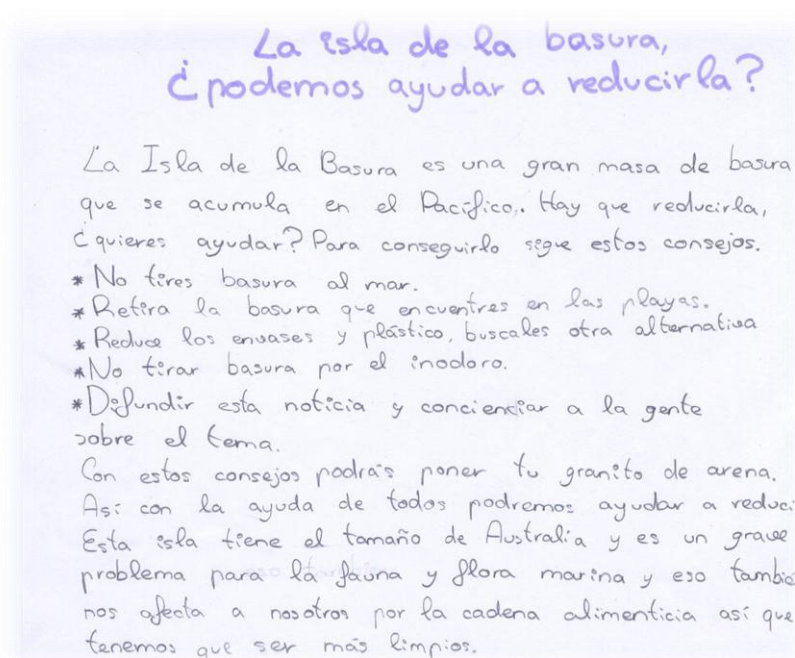 La isla de la basura,
¿podemos ayudar a reducirla?
La Isla de la Basura es una gran masa de basura
que se acumula en el Pacífico,. Hay que reducirla,
¿quieres ayudar? Para conseguirlo sigue estos consejos.
* No tires basura al mar.
* Retira la basura que encuentres en las playas.
* Reduce los envases y plástico, buscales otra alternativa
* No tirar basura por el inodoro.
* Difundir esta noticia y concienciar a la gente
sobre el tema.
Con estos consejos podrás poner tu granito de arena.
Así con la ayuda de todos podremos ayudar a reduci
Esta isla tiene el tamaño de Australia y es un grave
problema para la fauna y flora marina y eso tambié
nos afecta a nosotros por la cadena alimenticia así que
tenemos que ser más limpios.